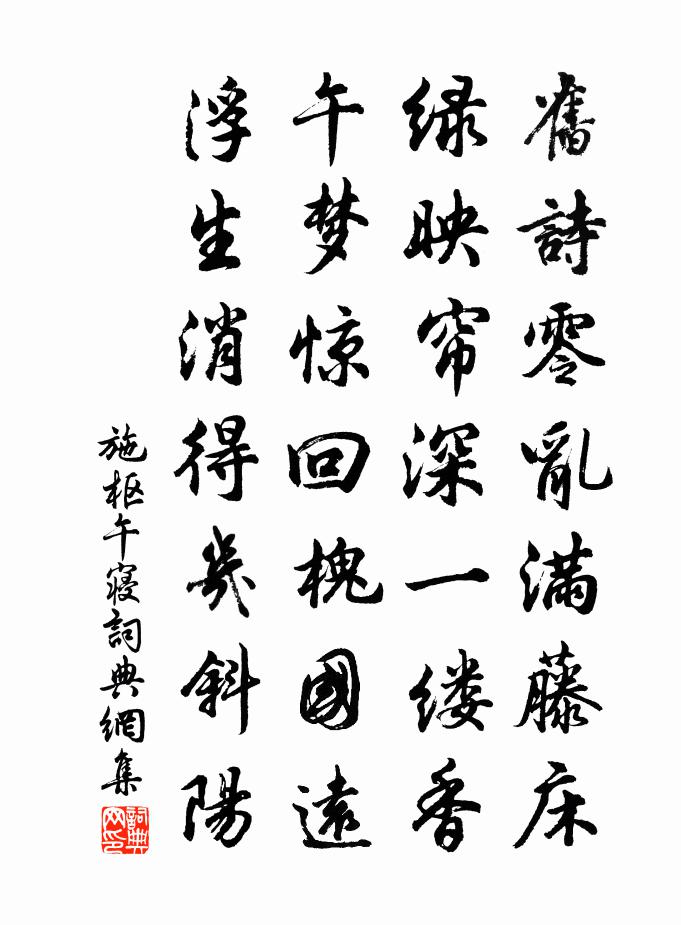 舊詩零亂滿藤床
绿映帘深一缕香
午梦惊回槐國遠
浮生消得幾斜陽
施枢午寝詞典網集
詞典网印